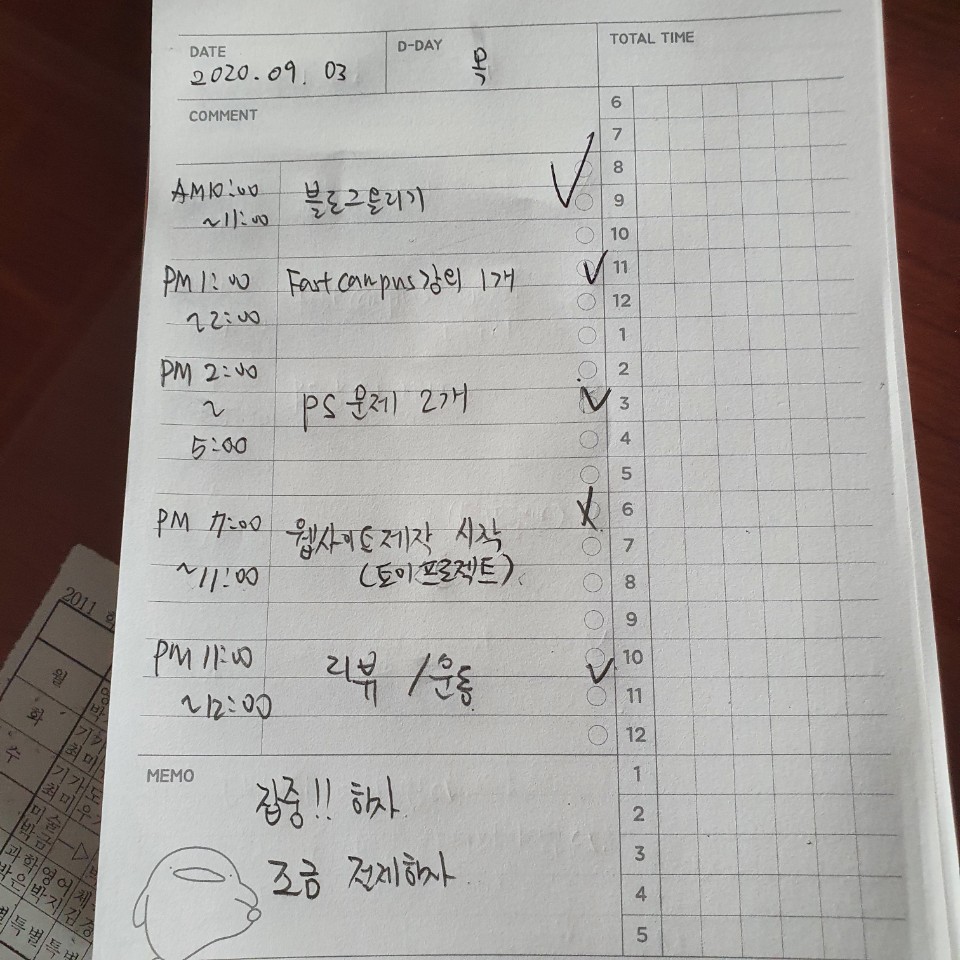 DATE
2020.09.03
D-DAY
목
TOTAL TIME
COMMENT
AM10:00
~11:00
블로그올리기
PM 1:00
~2:00
Fastcampus강의 1개
PM 2:00
~
5:00
PS 문제 2개
PM 7:00
~11:00
웹사이트제작 시작
(토이프로젝트)
PM 11:00
~12:00
리뷰 / 운동
6
7
8
9
10
11
12
1
2
3
4
5
6
7
8
9
10
11
12
1
2
3
4
5
MEMO
집중!! 하자
조금 절제하자
2011
월
화
수
기가
최미
기가도
최미우
미술
박금
과학영어체
박은박지김경
별특별특별